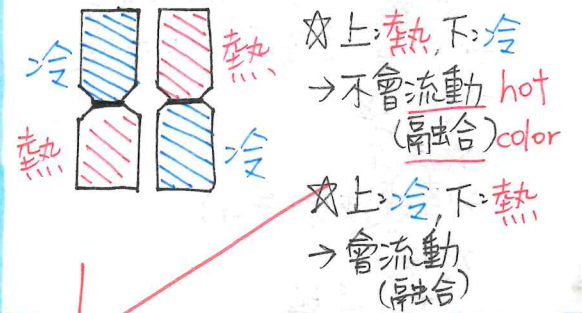 冷
熱
熱
冷
☆上:熱,下:冷
→不會流動 hot
(融合)color
☆上:冷,下:熱
→會流動
(融合)